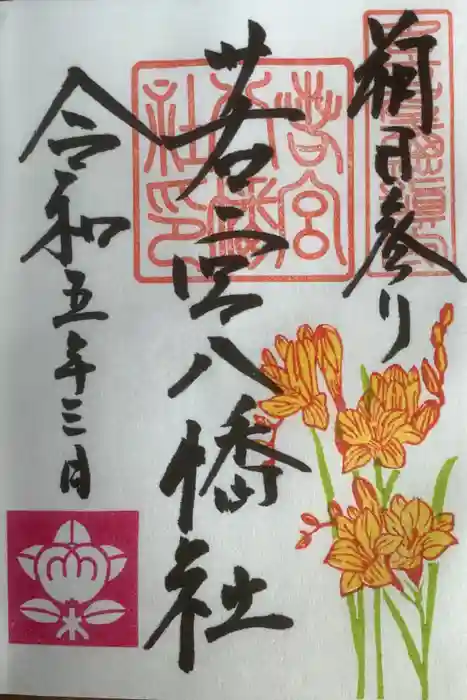 朔日参り
若宮八幡社
令和五年三月
若宮八幡社印